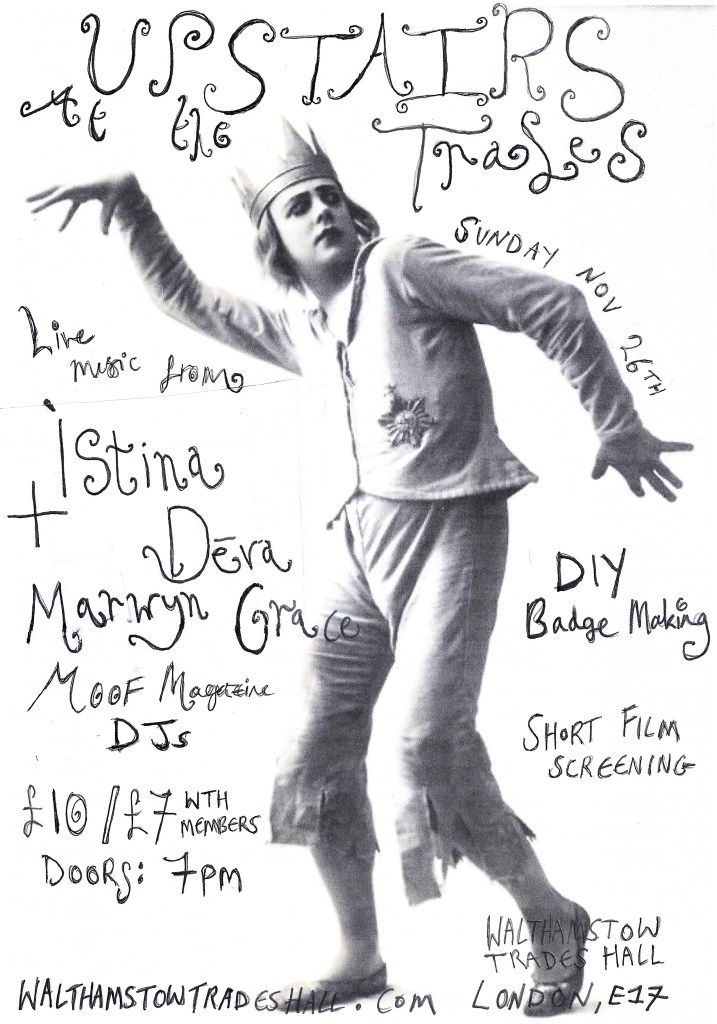 UPSTAIRS
At the Trades
SUNDAY NOV 26TH
Live
music from
Istina
+ Dēva
Marwyn Grace
MOOF Magazine
DJs
£10/£7 WTH
MEMBERS
DOORS: 7pm
DIY
Badge Making
SHORT FILM
SCREENING
WALTHAMSTOW
TRADES HALL
LONDON, E17
WALTHAMSTOWTRADESHALL.Com